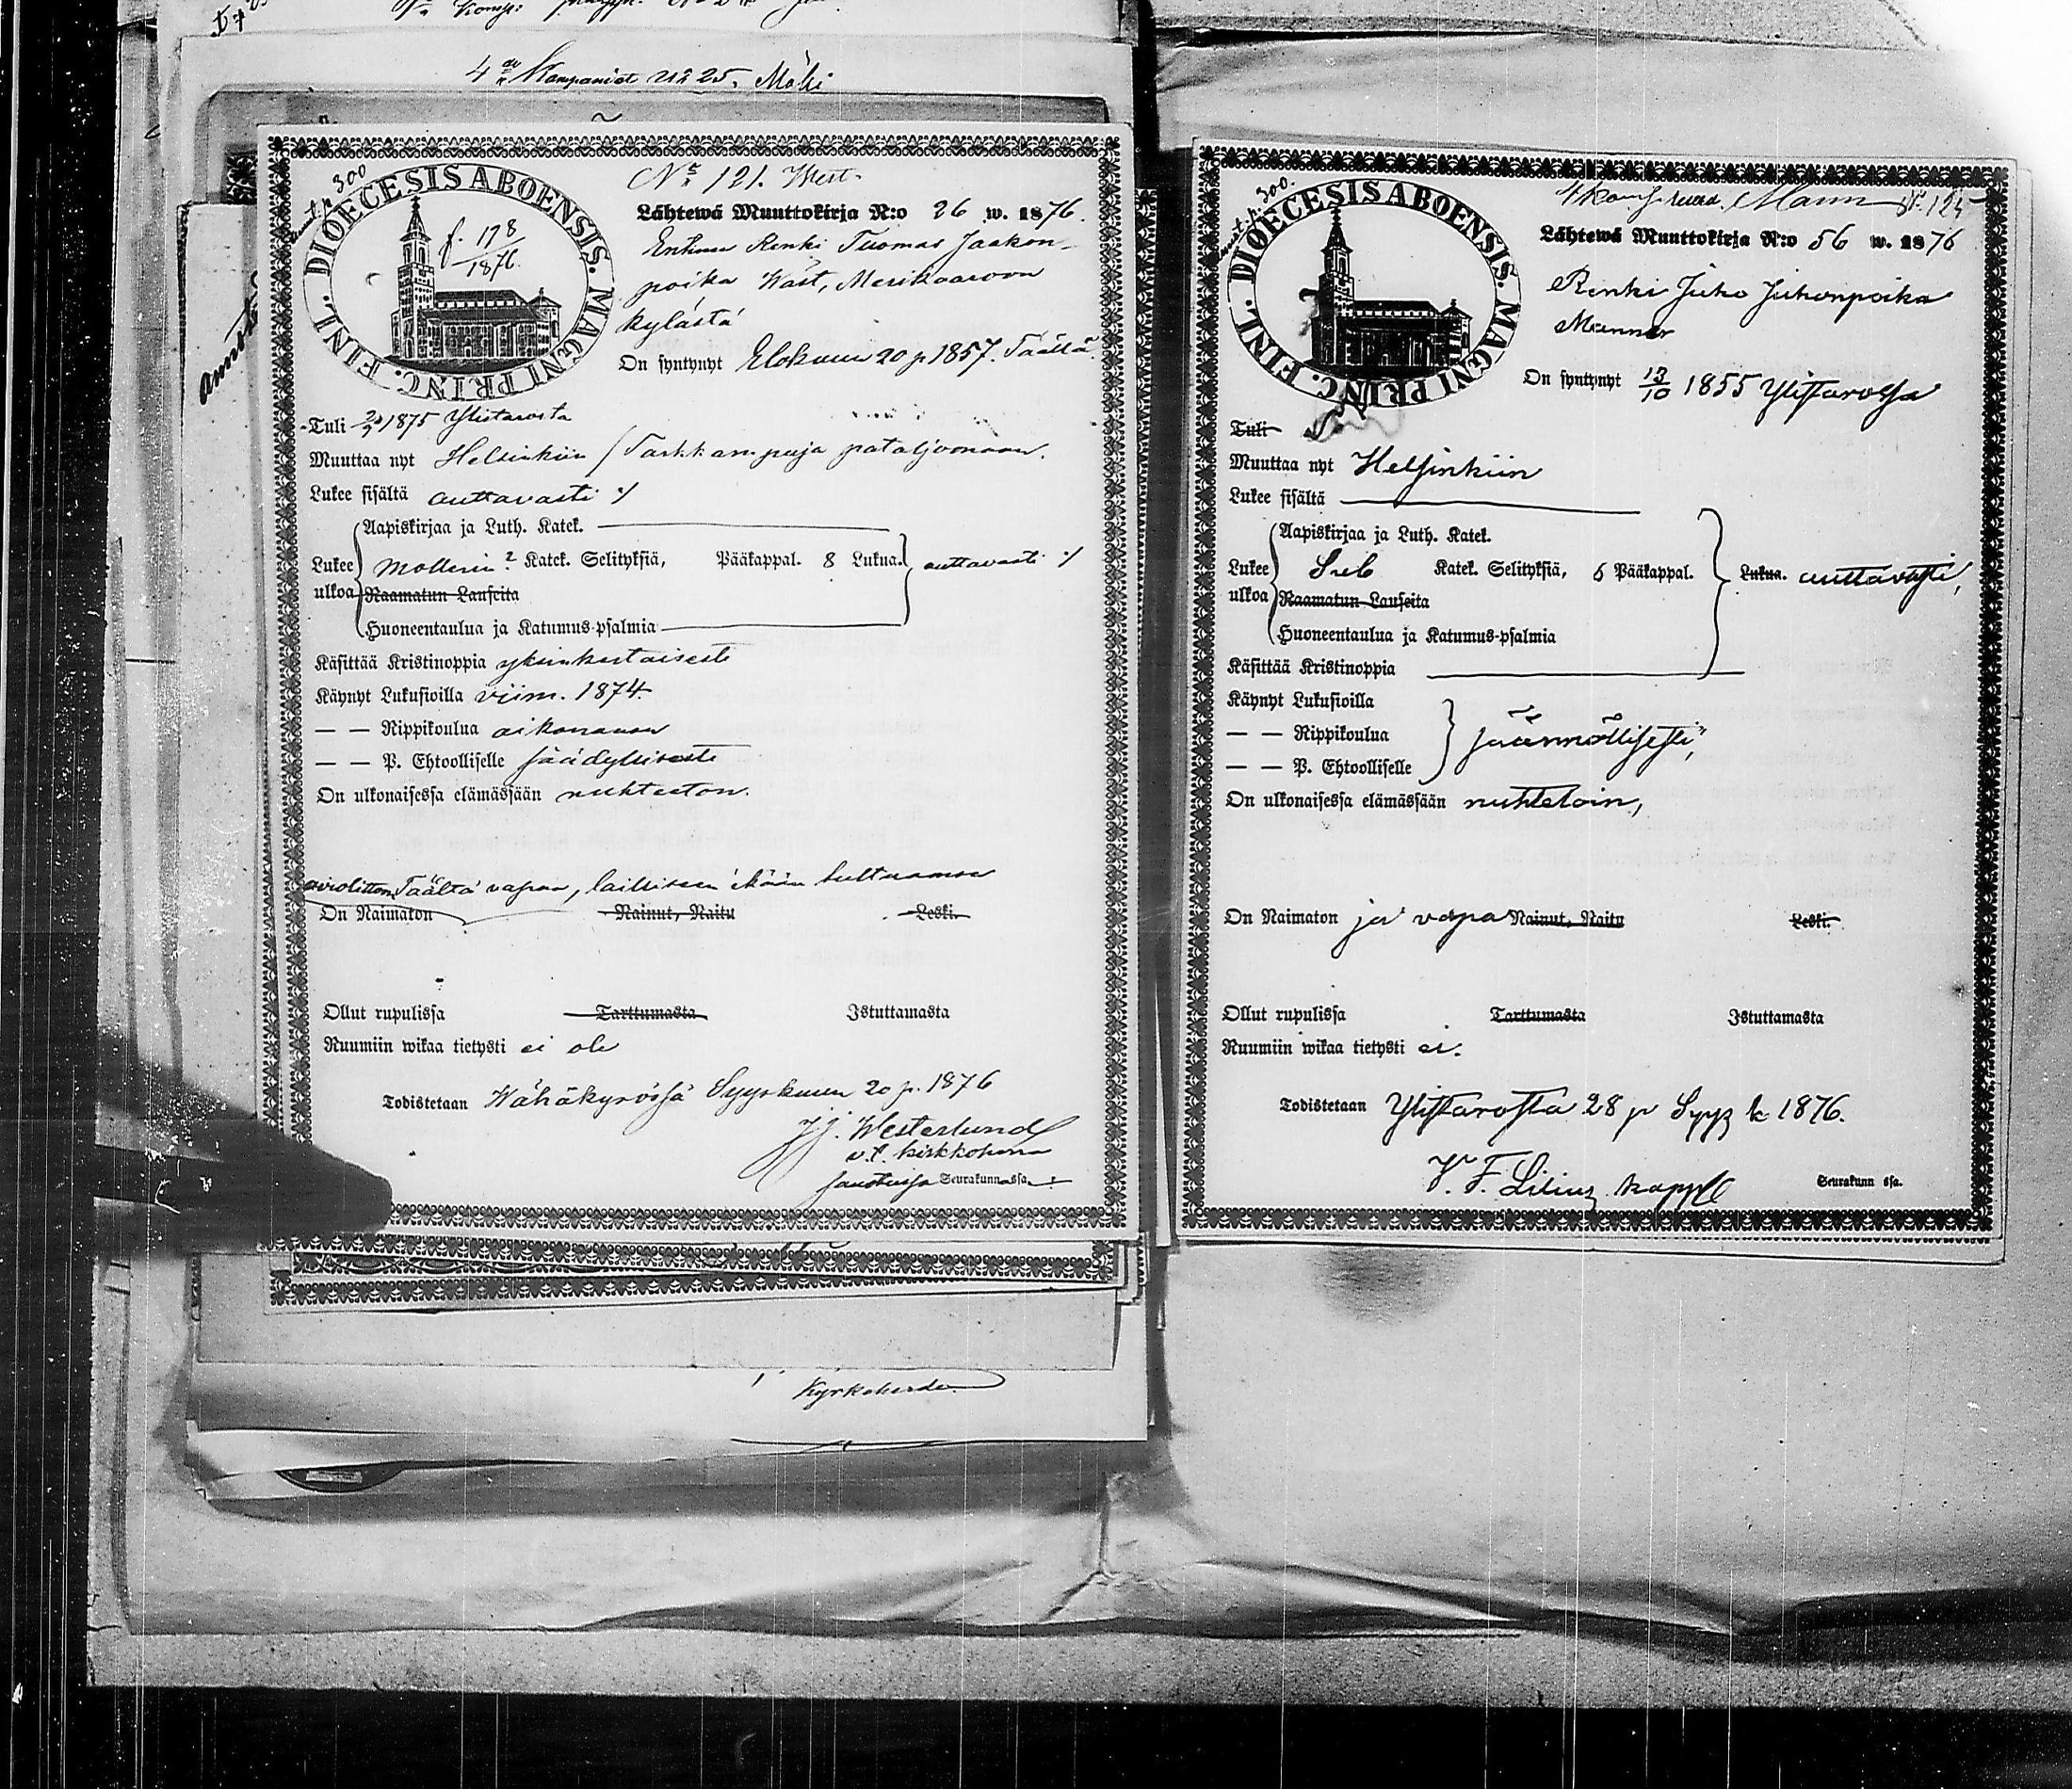 4de Kompaniet No 25. Mäki
No 121. West.
DIOECESIS ABOENSIS. MAGNI PRINC. FINL.
f. 178
1876.
Lähtewä Muuttokirja N:o 26 w. 1876.
Entinen Renki Tuomas Jaakon-
poika Wäst, Merikaarron
kylästä
On syntynyt Elokuun 20 p. 1857. Täällä
Tuli 1875 Ylistarosta
Muuttaa nyt Helsinkiin / Tarkkampuja pataljoonaan.
Lukee sisältä auttavasti
Aapiskirjaa ja Luth. Katek.
Lukee Mollerin Katek. Selityksiä, Pääkappal. 8 Lukua. auttavasti
ulkoa Raamatun Lauseita
Huoneentaulua ja Katumus-psalmia
Käsittää Kristinoppia yksinkertaisesti
Käynyt Lukusioilla viim. 1874
— — Rippikoulua aikanaan
— — P. Ehtoolliselle säädyllisesti
On ulkonaisessa elämässään nuhteeton.
Täältä vapaa, lailliseen ikään tultuansa
On Naimaton Nainut, Naitu Leski.
Ollut rupulissa Tarttumasta Istuttamasta
Ruumiin wikaa tietysti ei ole
Todistetaan Wähäkyrössä Syyskuun 20 p. 1876
J. J. Westerlund
v.t. kirkkoherra
Seurakunnassa.
Kyrkoherde
Mann No 125
DIOECESIS ABOENSIS. MAGNI PRINC. FINL.
Lähtewä Muuttokirja N:o 56 w. 1876
Renki Juho Juhonpoika
Manner
On syntynyt 13/10 1855 Ylistarossa
Tuli
Muuttaa nyt Helsinkiin
Lukee sisältä
Aapiskirjaa ja Luth. Katek.
Lukee Sveb Katek. Selityksiä, 6 Pääkappal. Lukua. auttavasti,
ulkoa Raamatun Lauseita
Huoneentaulua ja Katumus-psalmia
Käsittää Kristinoppia
Käynyt Lukusioilla
— — Rippikoulua säännöllisesti,
— — P. Ehtoolliselle
On ulkonaisessa elämässään nuhtetoin,
On Naimaton ja vapa Nainut, Naitu Leski.
Ollut rupulissa Tarttumasta Istuttamasta
Ruumiin wikaa tietysti ei.
Todistetaan Ylistarosta 28 p Syysk 1876.
V. F. Lilius kappl
Seurakunn ssa.